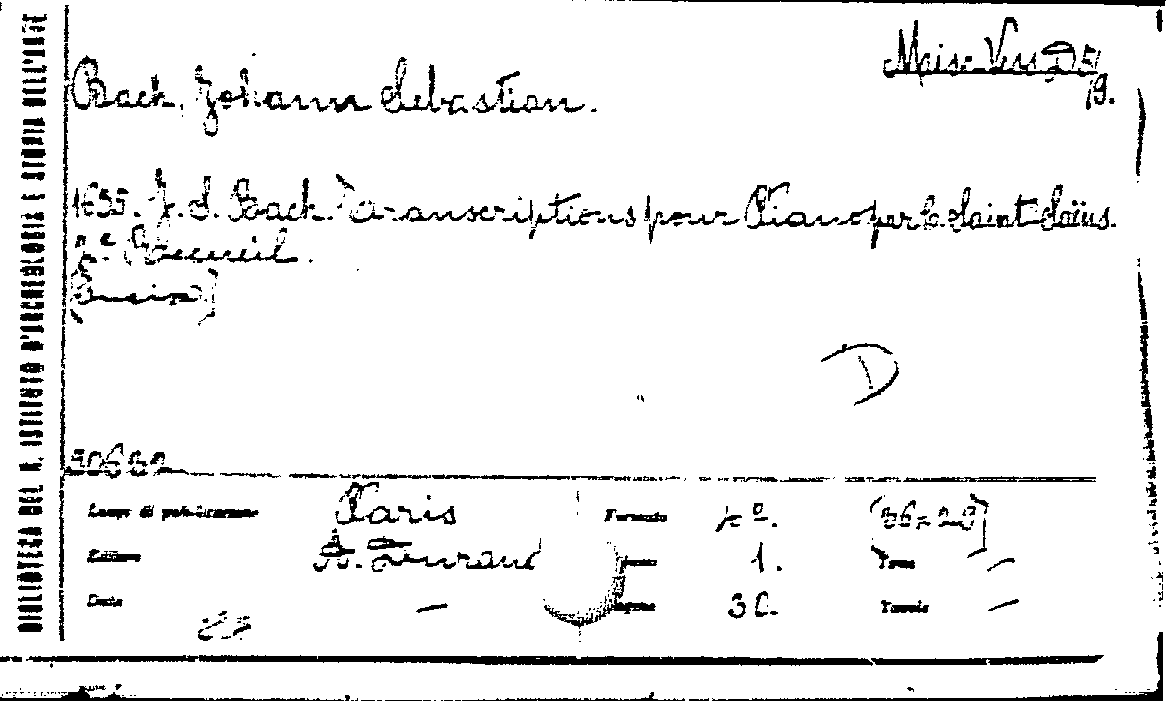 BIBLIOTECA DEL R. ISTITUTO D'ARCHEOLOGIA E STORIA DELL'ARTE
Bach, Johann Sebastian.
1655. J. S. Bach. Transcriptions pour Piano per C. Saint-Saëns.
Recueil.
D
50662
Luogo di pubblicazione Paris Formato 4º.
Editore A. Durand 1. Tomo –
Data – Pagine 30. Tavole –